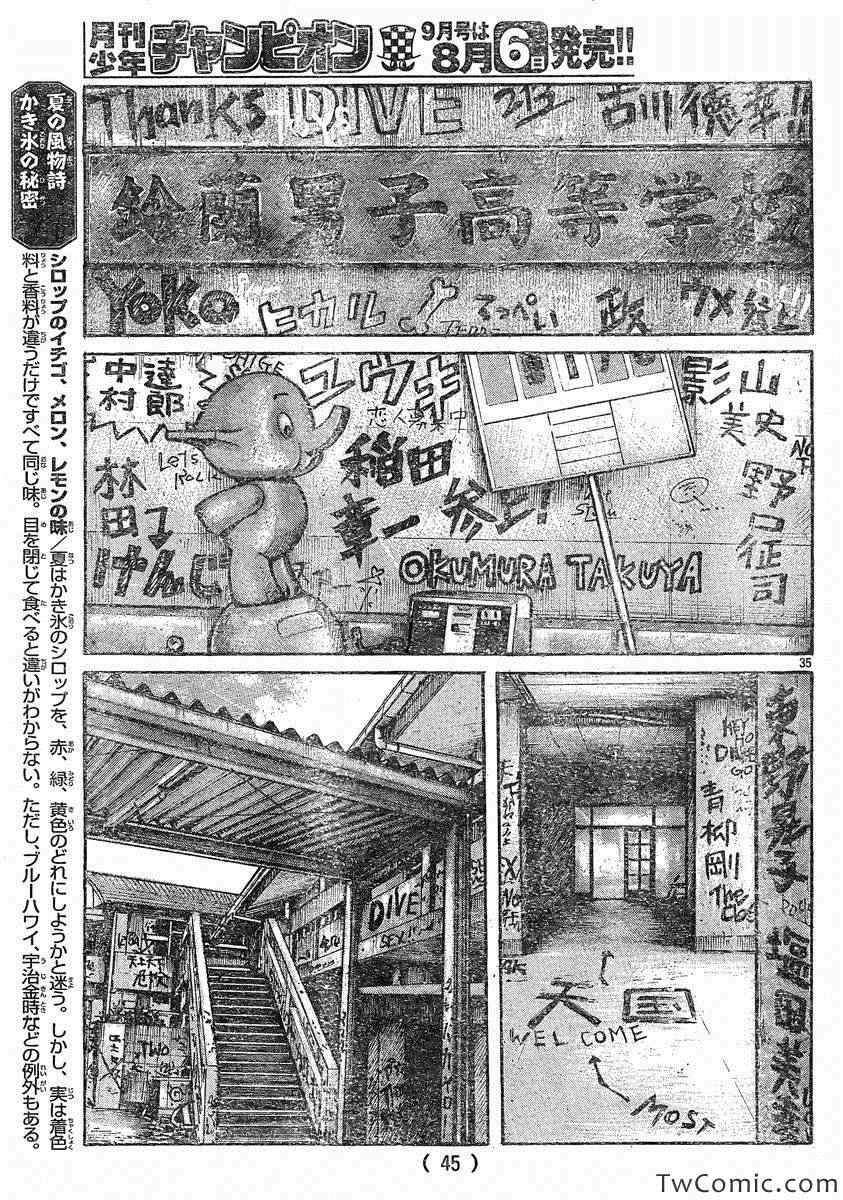 月刊少年チャンピオン 9月号は8月6日発売!!
夏の風物詩
かき氷の秘密
シロップのイチゴ、メロン、レモンの味/夏はかき氷のシロップを、赤、緑、黄色のどれにしようかと迷う。しかし、実は着色
料と香料が違うだけですべて同じ味。目を閉じて食べると違いがわからない。ただし、ブルーハワイ、宇治金時などの例外もある。
Thanks DIVE 古川徳幸!!
鈴蘭男子高等学校
Yoko ヒカル てっぺい 政 ウメ
中村 達郎
ユウキ
恋人募集中
Let's
Rock
稲田
章一
参上!
林田
けんじ
OKUMURA TAKUYA
影山
美史
野口征司
35
DIVE
SEX
天上天下
TWO
HEY
DI
GO
青柳剛
The
東野
塩田
天国
WELCOME
MOST
( 45 )
TwComic.com